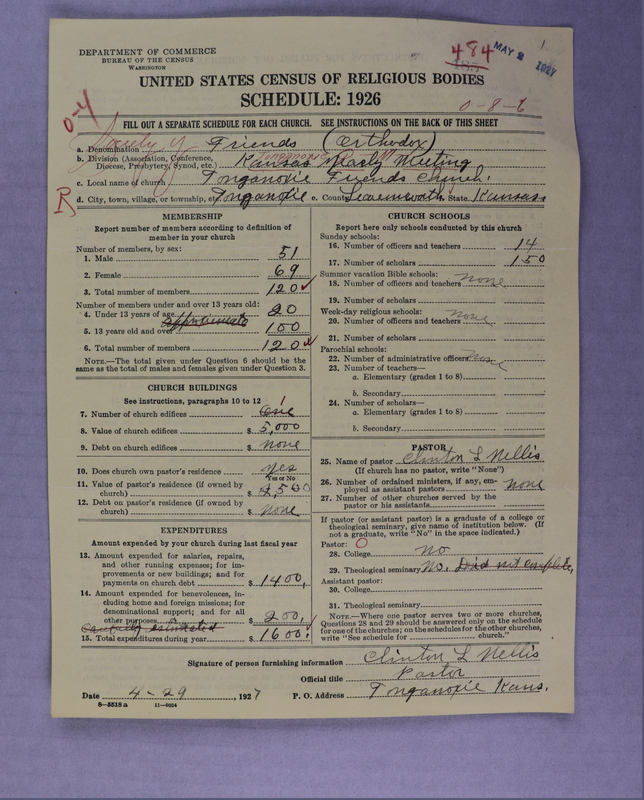 DEPARTMENT OF COMMERCE
BUREAU OF THE CENSUS
WASHINGTON
484
MAY 2 1927
1
UNITED STATES CENSUS OF RELIGIOUS BODIES
SCHEDULE: 1926
0-8-6
0-4
FILL OUT A SEPARATE SCHEDULE FOR EACH CHURCH. SEE INSTRUCTIONS ON THE BACK OF THIS SHEET
Society of
a. Denomination Friends (Orthodox)
b. Division (Association, Conference, Diocese, Presbytery, Synod, etc.) Kansas Yearly Meeting
Tonganoxie
c. Local name of church Tonganoxie Friends Church.
R
d. City, town, village, or township, etc. Tonganoxie e. County Leavenworth State Kansas
MEMBERSHIP
Report number of members according to definition of
member in your church
Number of members, by sex:
1. Male 51
2. Female 69
3. Total number of members 120
Number of members under and over 13 years old:
4. Under 13 years of age 20
approximate
5. 13 years old and over 100
6. Total number of members 120
NOTE.—The total given under Question 6 should be the
same as the total of males and females given under Question 3.
CHURCH BUILDINGS
See instructions, paragraphs 10 to 12
7. Number of church edifices One
1
8. Value of church edifices $ 5,000
9. Debt on church edifices $ none
10. Does church own pastor's residence yes
Yes or No
11. Value of pastor's residence (if owned by
church) $ 2,500
12. Debt on pastor's residence (if owned by
church) $ none
EXPENDITURES
Amount expended by your church during last fiscal year
13. Amount expended for salaries, repairs,
and other running expenses; for im-
provements or new buildings; and for
payments on church debt $ 1400,
14. Amount expended for benevolences, in-
cluding home and foreign missions; for
denominational support; and for all
other purposes $ 200,
Carefully estimated
15. Total expenditures during year $ 1600.
CHURCH SCHOOLS
Report here only schools conducted by this church
Sunday schools:
16. Number of officers and teachers 14
17. Number of scholars 150
Summer vacation Bible schools:
18. Number of officers and teachers none
19. Number of scholars
Week-day religious schools:
20. Number of officers and teachers none
21. Number of scholars
Parochial schools:
22. Number of administrative officers none
23. Number of teachers—
a. Elementary (grades 1 to 8)
b. Secondary
24. Number of scholars—
a. Elementary (grades 1 to 8)
b. Secondary
PASTOR
25. Name of pastor Clinton L Nellis
(If church has no pastor, write "None")
26. Number of ordained ministers, if any, em-
ployed as assistant pastors none
27. Number of other churches served by the
pastor or his assistants
If pastor (or assistant pastor) is a graduate of a college or
theological seminary, give name of institution below. (If
not a graduate, write "No" in the space indicated.)
Pastor: O
28. College no
29. Theological seminary No. Did not complete,
Assistant pastor:
30. College
31. Theological seminary
NOTE—Where one pastor serves two or more churches,
Questions 28 and 29 should be answered only on the schedule
for one of the churches; on the schedules for the other churches,
write "See schedule for church."
Signature of person furnishing information Clinton L Nellis
Official title Pastor
Date 4-29, 1927
P. O. Address Tonganoxie Kans.
8-5518 a 11-9024